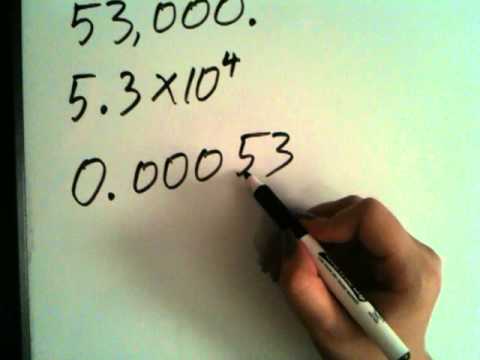 53,000.
5.3×10⁴
0.00053